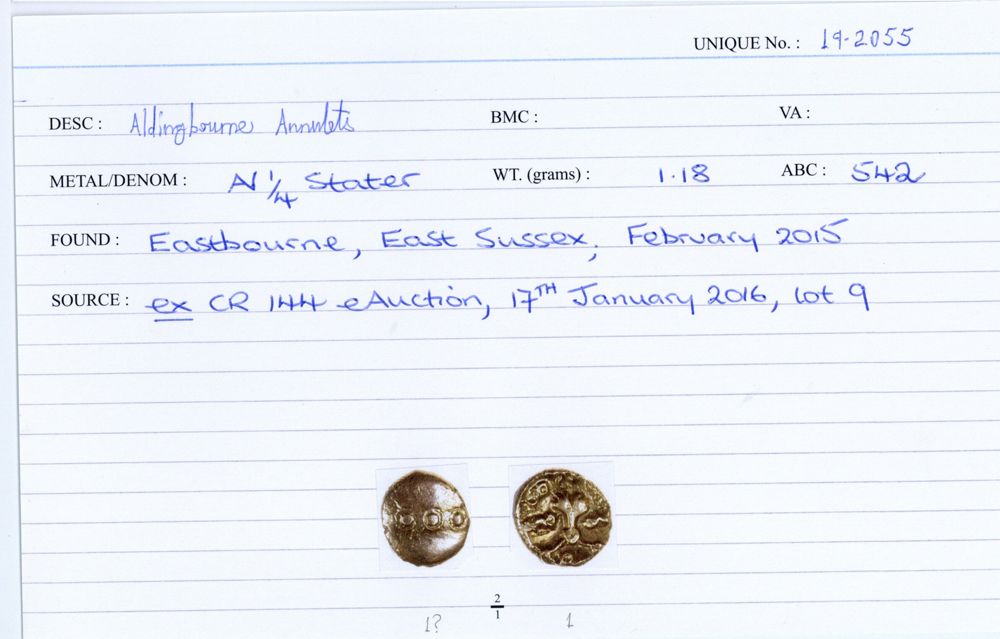 UNIQUE No. : 19-2055
DESC : Aldingbourne Annulets BMC : VA :
METAL/DENOM : AV 1/4 Stater WT. (grams) : 1.18 ABC : 542
FOUND : Eastbourne, East Sussex, February 2015
SOURCE : ex CR 144 eAuction, 17TH January 2016, lot 9
2/1
1? 1